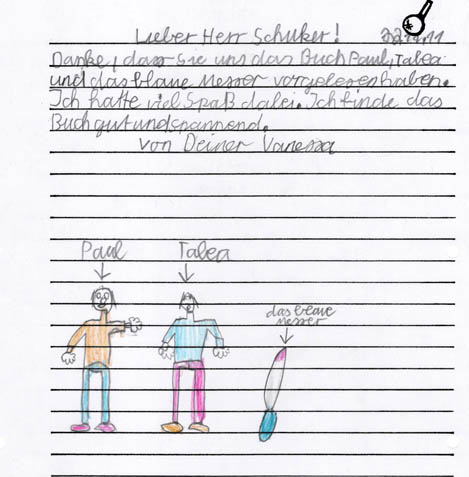 Lieber Herr Schuker! 22.11.11
Danke, dass Sie uns das Buch Paul, Talea
und das blaue Messer vorgelesen haben.
Ich hatte viel Spaß dabei. Ich finde das
Buch gut und spannend.
von Deiner Vanessa
Paul Talea
das blaue
Messer